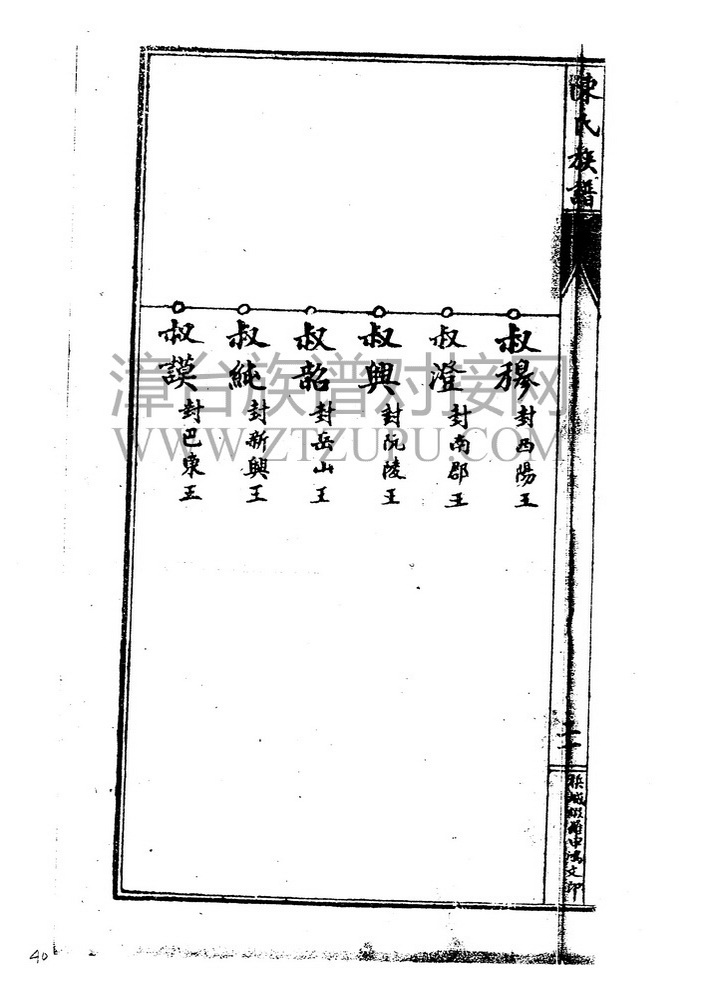 陳氏族譜
叔穆 封西陽王
叔澄 封南郡王
叔興 封阮陵王
叔韶 封岳山王
叔純 封新興王
叔謨 封巴東王
漳台族谱对接网
WWW.ZTZUPU.COM
二十
申鴻文印
40